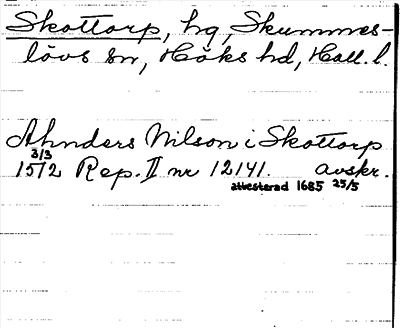 Skottorp, hg, Skummes-
lövs sn, Höks hd, Hall. l.
Ahnders Nilson i Skottorp
3/3
1512 Rep. II nr 12141. avskr.
attesterad 1685 25/5